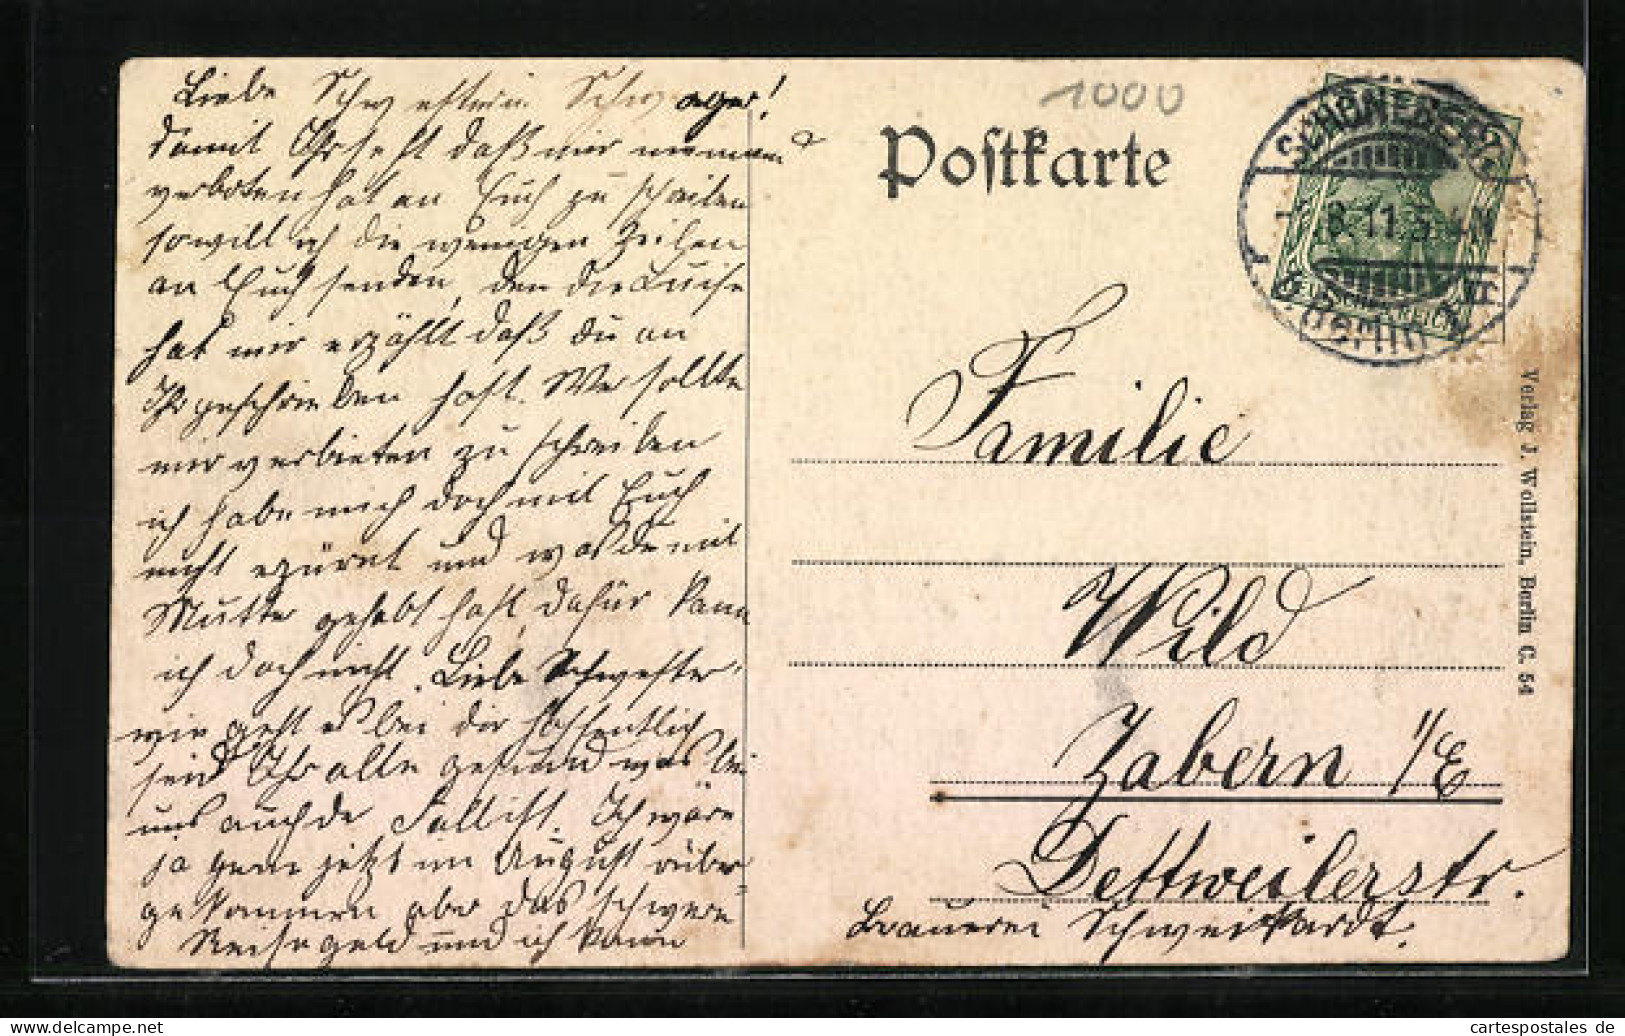 Liebe Schwester u Schwager!
Damit Ihr seht daß mir niemand
verboten hat an Euch zu schreiben
so will ich die wenigen Zeilen
an Euch senden, den die Luise
hat mir erzählt daß du an
Ihr geschrieben hast. Wer sollte
mir verbieten zu schreiben
ich habe mich doch mit Euch
nicht erzürnt und was du mit
Mutter gehabt hast, dafür kann
ich doch nicht. Liebe Schwester
wie geht es bei dir hoffentlich
seid Ihr alle gesund was bei
uns auch de Fall ist. Ich wäre
ja gern jetzt im August rüber
gekommen aber das schwere
Reisegeld und ich kann
1000
Postkarte
SCHÖNEBERG
8.11.5
Berlin
DEUTSCHES REICH
Familie
Wild
Zabern i/E
Dettweilerstr.
Brauerei Schweikardt.
Verlag J. Wollstein, Berlin C. 54
cartespostales de
https://www.cartespostales.eu